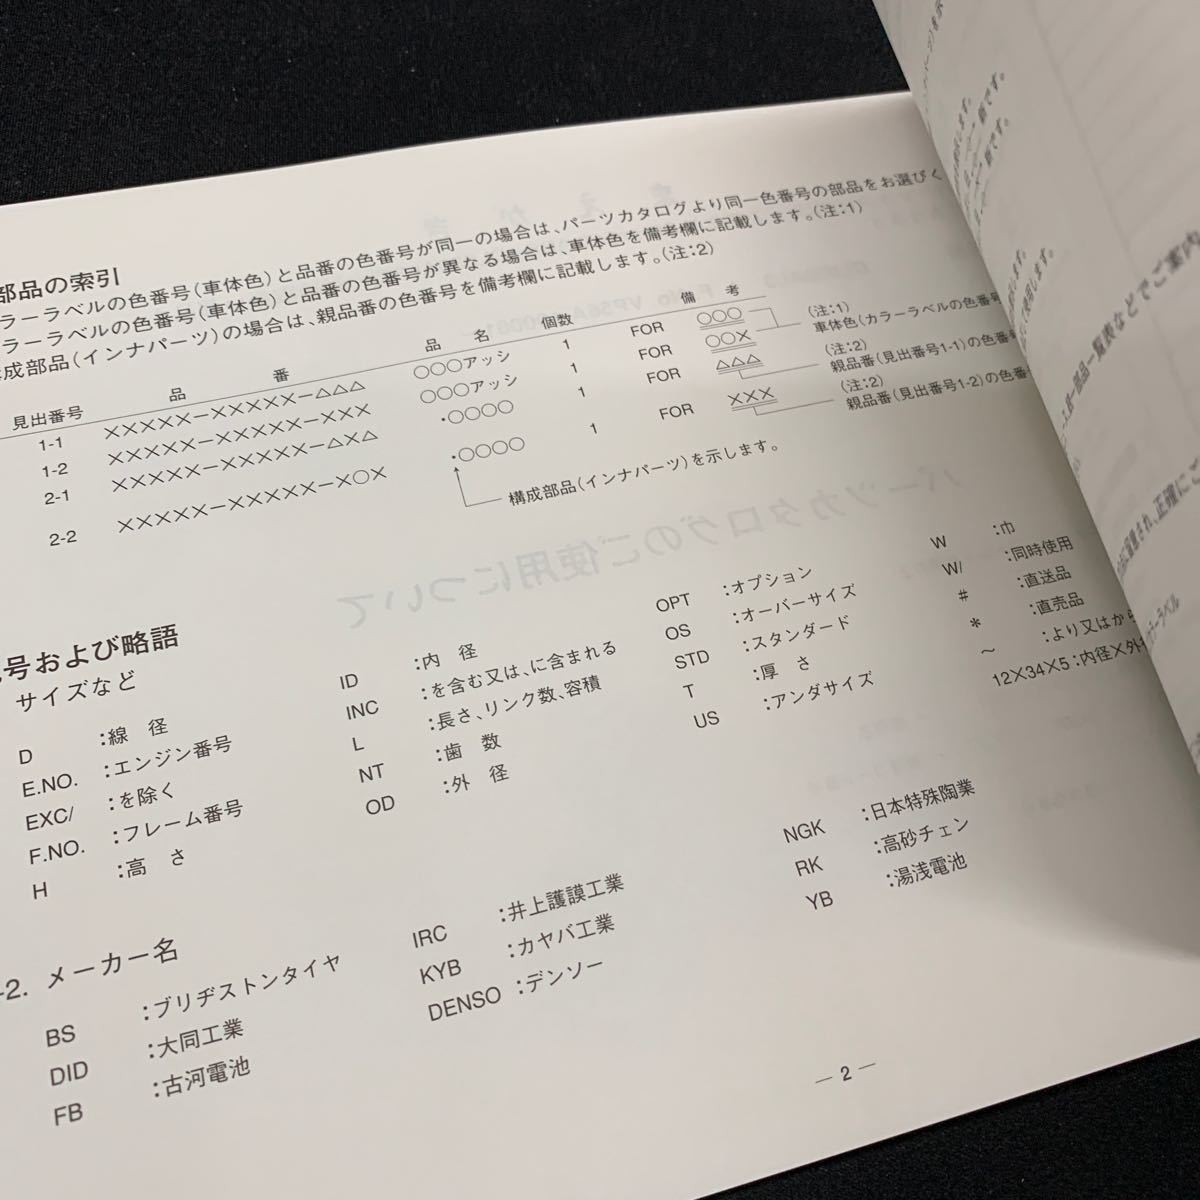 部品の索引
カラーラベルの色番号(車体色)と品番の色番号が同一の場合は、パーツカタログより同一色番号の部品をお選びく
カラーラベルの色番号(車体色)と品番の色番号が異なる場合は、車体色を備考欄に記載します。(注:1)
構成部品(インナパーツ)の場合は、親品番の色番号を備考欄に記載します。(注:2)
見出番号 品 番 品 名 個数 備 考
1-1 ×××××−×××××−△△△ ○○○アッシ 1 FOR ○○○ (注:1)
車体色(カラーラベルの色番号
1-2 ×××××−×××××−××× ○○○アッシ 1 FOR ○○× (注:2)
親品番(見出番号1-1)の色番号
2-1 ×××××−×××××−△×△ ・○○○○ 1 FOR △△△ (注:2)
親品番(見出番号1-2)の色番号
2-2 ×××××−×××××−×○× ・○○○○ 1 FOR ×××
構成部品(インナパーツ)を示します。
号および略語
サイズなど
D :線 径
E.NO. :エンジン番号
EXC/ :を除く
F.NO. :フレーム番号
H :高 さ
ID :内 径
INC :を含む又は、に含まれる
L :長さ、リンク数、容積
NT :歯 数
OD :外 径
OPT :オプション
OS :オーバーサイズ
STD :スタンダード
T :厚 さ
US :アンダサイズ
W :巾
W/ :同時使用
# :直送品
* :直売品
~ :より又はから
12×34×5:内径×外
-2. メーカー名
BS :ブリヂストンタイヤ
DID :大同工業
FB :古河電池
IRC :井上護膜工業
KYB :カヤバ工業
DENSO :デンソー
NGK :日本特殊陶業
RK :高砂チェン
YB :湯浅電池
— 2 —